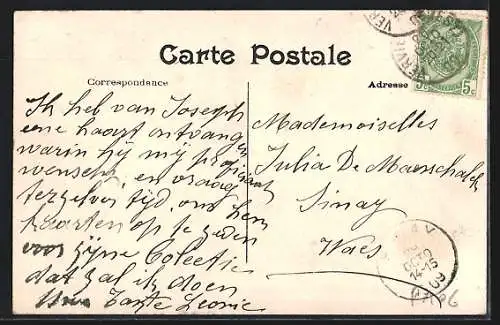 Carte Postale
Correspondance
Adresse
Ik heb van Joseph
eene kaart ontvangen
warin hij mij proficiat
wenscht, en vraag
terzelver tijd, om hem
kaarten op te zeden
voor zijne Colectie
dat zal ik doen
Tante Leonie
Mademoiselles
Julia De Maerschalck
Sinay
Waes
5c 5c
VERVIERS
14-15